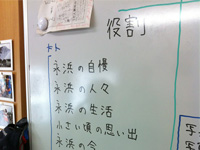 役割
永浜の自慢
永浜の人々
永浜の生活
小さい頃の思い出
永浜の今
写
写